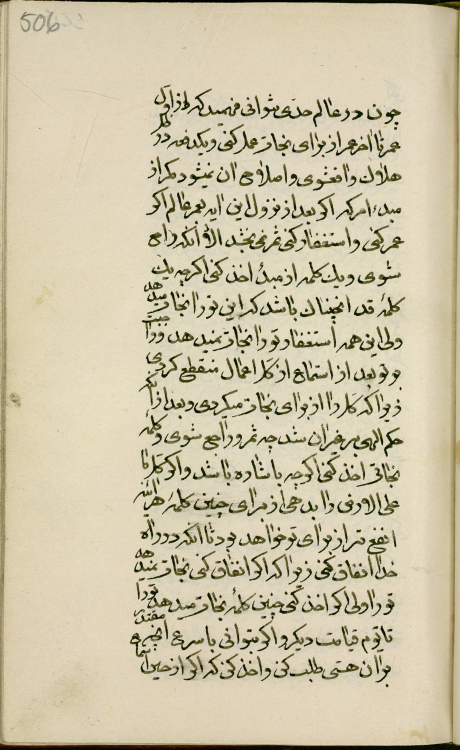 506
چون در عالم حدی نتوانی فهمید که از اول
عمر تا آخر عمر از برای نجات عمل کنی و یکدفعه در کلمه
هلاک واقع شوی و اصلاح ان نمیشود مگر از
مبدء امر که اگر بعد از نزول این ایه بعمر عالم اگر
عمر کنی و استغفار کنی ثمر نمی بخشد الا آنکه راجع
شوی و یک کلمه از مبدء اخذ کنی اگر چه یک
کلمهٔ قد انجیناک باشد که این تو را نجات میدهد
ولی این همه استغفار تو را نجات نمیدهد زیرا
بر تو بعد از استماع از کل اعمال منقطع کردی
زیرا که کل را از برای نجات میکردی و بعد از آنکه
حکم الهی بر غیر ان شد چه ثمر راجع شوی و کلمه
نجاتی اخذ کنی اگر چه باشاره باشد و اگر کل ما
علی الارض را بدهی از برای چنین کلمهٔ هر آینه
انفع تر از برای تو خواهد بود تا آنکه در راه
خدا انفاق کنی زیرا که اگر انفاق کنی نجات نمیدهد
تو را ولی اگر اخذ کنی چنین کلمه نجات میدهد تو را
تا یوم قیامت دیگر و اگر بتوانی باسرع آنچه مقتدر
بر ان هستی طلب کنی و اخذ کنی که اگر از حین